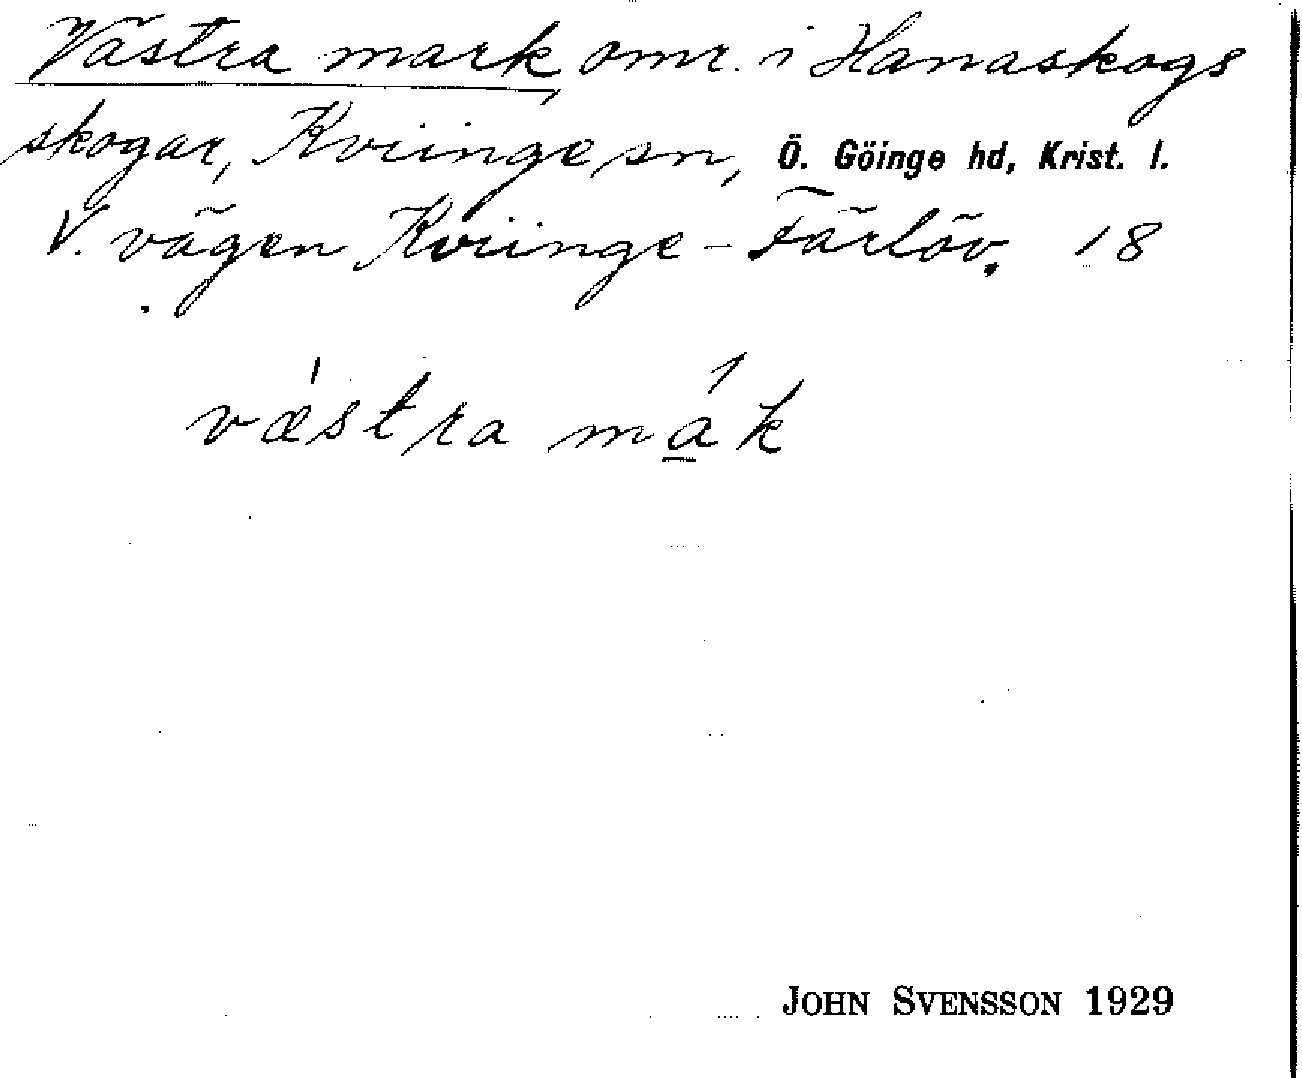 Västra mark, omr. i Hanaskogs
skogar, Kviinge sn, Ö. Göinge hd, Krist. l.
V. vägen Kviinge - Färlöv. 18
vǽstra má̱k
JOHN SVENSSON 1929